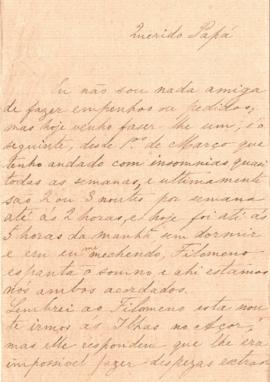 Querido Papá
Eu não sou nada amiga
de fazer empenhos ou pedidos,
mas hoje venho faser-lhe um, é o
seguinte, desde 1º de Março que
tenho andado com insomnias quasi
todas as semanas, e ultimamente
são 2 ou 3 noites por semana
até ás 2 horas, e hoje foi até ás
5 horas da manhã sem dormir
e eu mechendo, Filomeno
espanta o somno e ahi estamos
nós ambos acordados.
Lembrei ao Filomeno esta noi
te irmos ás Ilhas no Açôr,
mas elle respondeu que lhe era
impossivel fazer despezas extraor